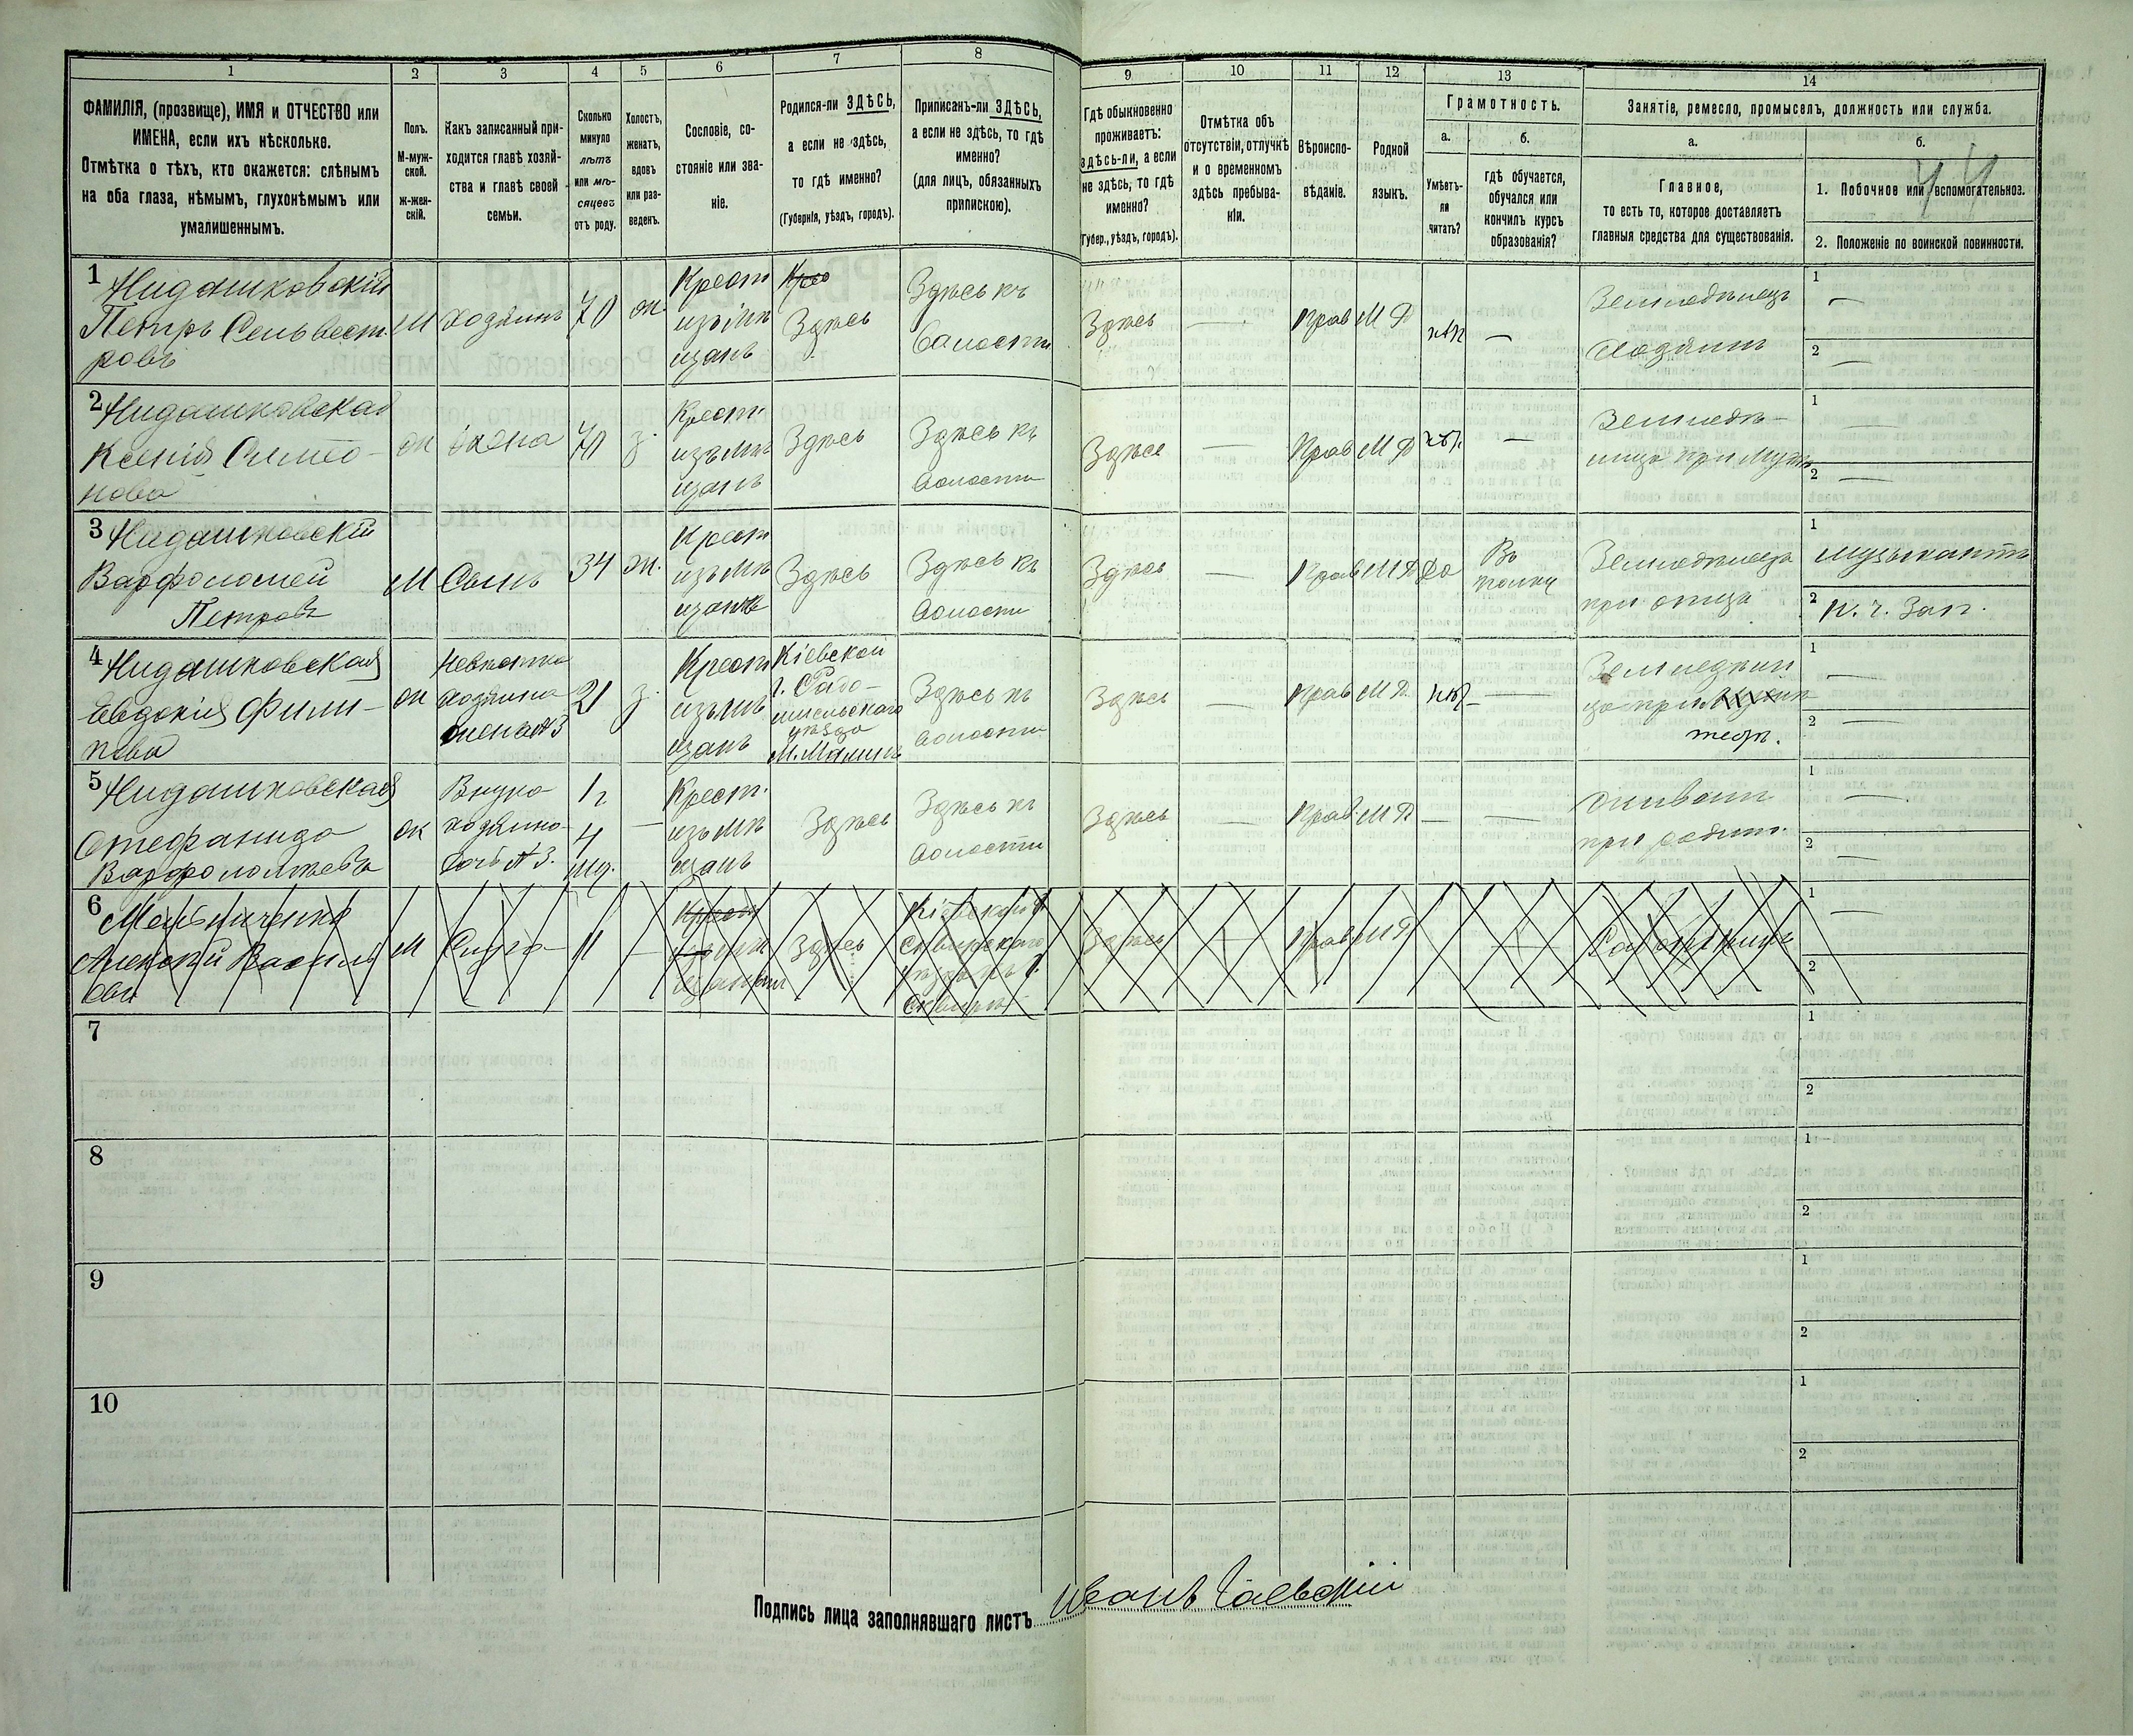 1
2
3
4
5
6
7
8
9
10
11
12
13
14
ФАМИЛІЯ, (прозвище), ИМЯ и ОТЧЕСТВО или
ИМЕНА, если ихъ нѣсколько.
Отмѣтка о тѣхъ, кто окажется: слѣпымъ
на оба глаза, нѣмымъ, глухонѣмымъ или
умалишеннымъ.
Полъ.
М-муж-
ской.
ж-жен-
скій.
Какъ записанный при-
ходится главѣ хозяй-
ства и главѣ своей
семьи.
Сколько
минуло
лѣтъ
или мѣ-
сяцевъ
отъ роду.
Холостъ,
женатъ,
вдовъ
или раз-
веденъ.
Сословіе, со-
стояніе или зва-
ніе.
Родился-ли ЗДѢСЬ,
а если не здѣсь,
то гдѣ именно?
(Губернія, уѣздъ, городъ).
Приписанъ-ли ЗДѢСЬ,
а если не здѣсь, то гдѣ
именно?
(для лицъ, обязанныхъ
припискою).
Гдѣ обыкновенно
проживаетъ:
здѣсь-ли, а если
не здѣсь, то гдѣ
именно?
(Губер., уѣздъ, городъ).
Отмѣтка объ
отсутствіи, отлучкѣ
и о временномъ
здѣсь пребыва-
ніи.
Вѣроиспо-
вѣданіе.
Родной
языкъ.
Грамотность.
а.
б.
Умѣетъ-
ли
читать?
гдѣ обучается,
обучался или
кончилъ курсъ
образованія?
Занятіе, ремесло, промыселъ, должность или служба.
а.
б.
Главное,
то есть то, которое доставляетъ
главныя средства для существованія.
1. Побочное или вспомогательное.
2. Положеніе по воинской повинности.
44
1 Нидашковскій
Петръ Сельвест
ровъ
М
хозяинъ
70
ж.
Крест
изъ мѣ
щанъ
Здѣсь
Здѣсь къ
волости
Здѣсь
—
Прав
М Р
нѣт
—
Земледѣлецъ
хозяинъ
1 —
2 —
2 Нидашковская
Ксенія Симео-
нова
ж
жена
70
з.
Крест.
изъ мѣ
щанъ
Здѣсь
Здѣсь къ
волости
Здѣсе
—
Прав
М Р
нѣт
—
Земледѣ-
лица при мужѣ
1 —
2 —
3 Нидашковскій
Варфоломей
Петровъ
М
Сынъ
34
ж.
Крест
изъ мѣ
щанъ
Здѣсь
Здѣсь къ
волости
Здѣсь
—
Прав
М Р
да
Въ
полку
Земледѣлецъ
при отцѣ
1 музыкантъ
2 н. ч. Зап.
4 Нидашковская
Евдокія Фили-
пова
ж
Невѣстка
хозяина
жена №3
21
з.
Крест
изъ мѣ
щанъ
Кіевской
г. Радо-
мысльскаго
уѣзда
М. Малинъ
Здѣсь къ
волости
Здѣсь
—
Прав
М Р
нѣт
—
Земледѣли
ца при
1 —
2 —
5 Нидашковская
Стефанида
Варфоломѣева
ж
Внука
хозяина
дочь №3.
1 г
4
мѣ.
—
Крест.
изъ мѣ
щанъ
Здѣсь
Здѣсь къ
волости
Здѣсь
—
Прав
М Р
—
—
Живетъ
при родит.
1 —
2 —
6 Мельниченко
Алексѣй Василь
евъ
М
Слуга
11
—
Здѣсь
Кіевской г.
Сквирскаго
уѣзда къ г.
Сквирѣ
Здѣсь
—
Прав
М Р
—
Работникъ
1 —
2
7
1
2
8
1
2
9
1
2
10
1
2
Подпись лица заполнявшаго листъ Иванъ